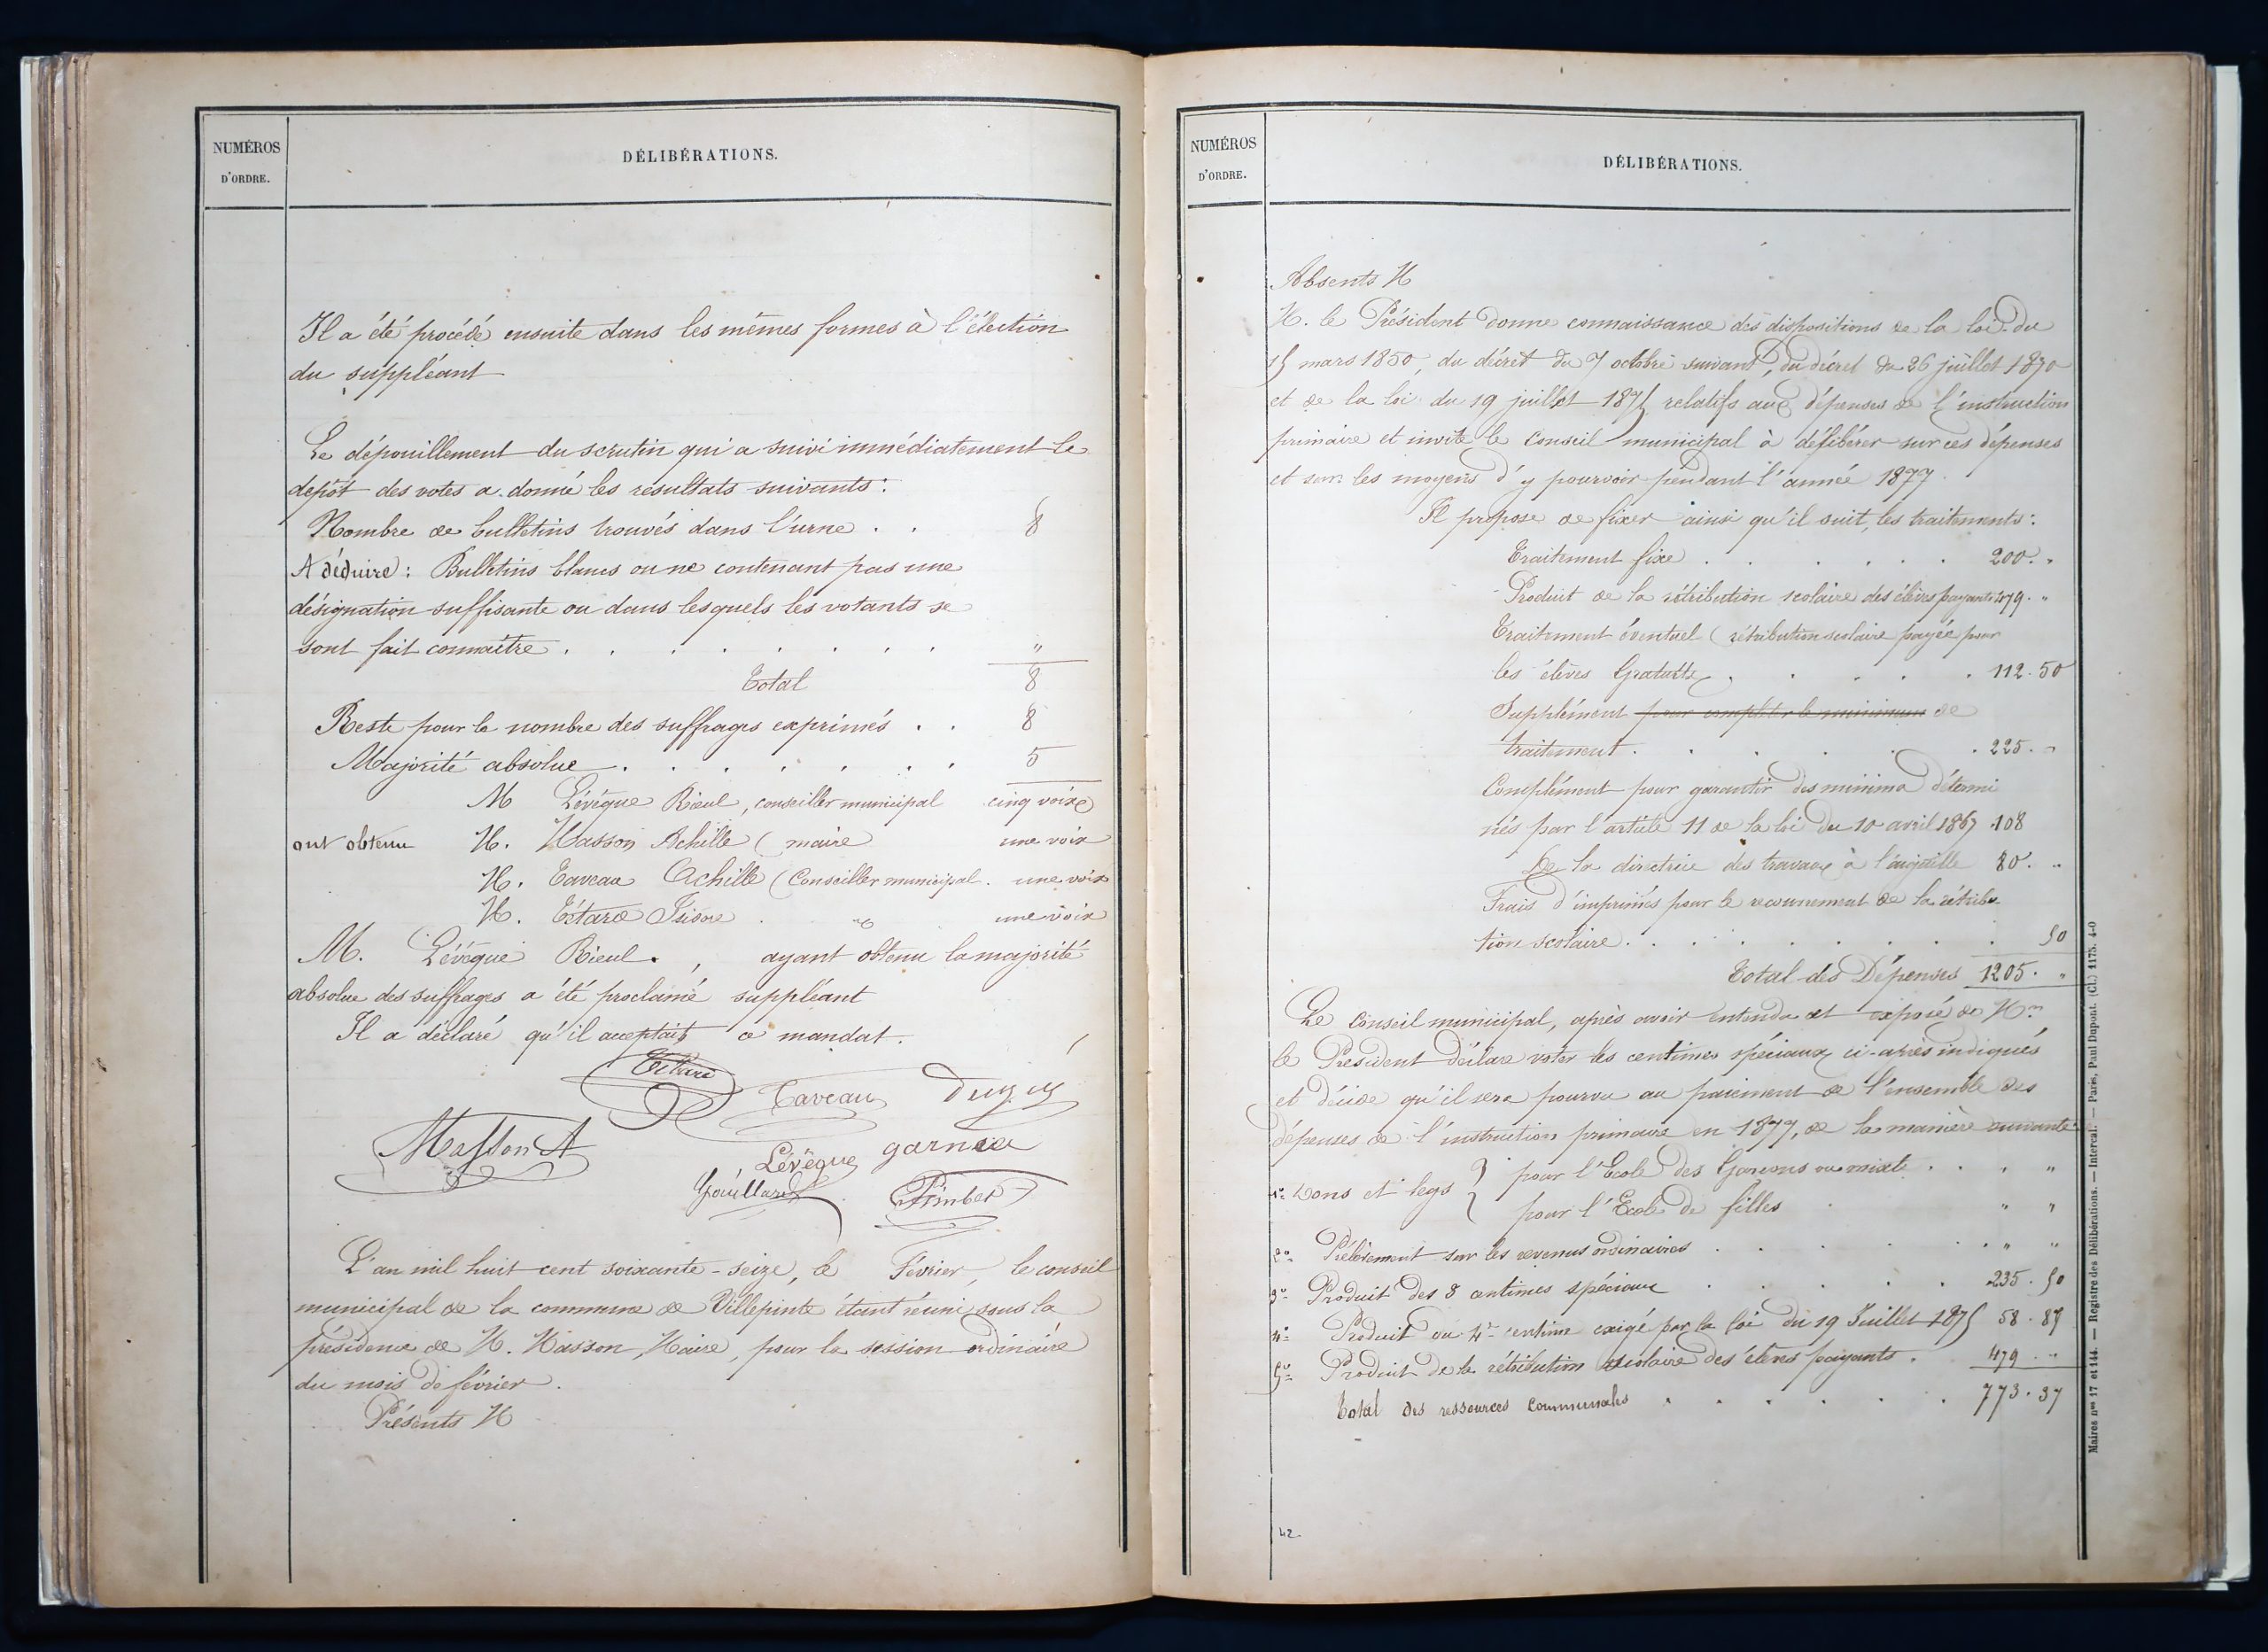 NUMÉROS
D'ORDRE.
DÉLIBÉRATIONS.
Il a été procédé ensuite dans les mêmes formes à l'élection
du suppléant
Le dépouillement du scrutin qui a suivi immédiatement le
depôt des votes a donné les résultats suivants :
Nombre de bulletins trouvés dans l'urne . . 8
A déduire : Bulletins blancs ou ne contenant pas une
désignation suffisante ou dans lesquels les votants se
sont fait connaître . . . . . . . . "
Total 8
Reste pour le nombre des suffrages exprimés . . 8
Majorité absolue . . . . . . . 5
M Lévêque Rieul, conseiller municipal cinq voix
ont obtenu M. Masson Achille ( maire une voix
M. Taveau Achille ( Conseiller municipal. une voix
M. Tétard Isidore . une voix
M. Lévêque Rieul. , ayant obtenu la majorité
absolue des suffrages a été proclamé suppléant
Il a déclaré qu'il acceptait ce mandat.
Tétard
Taveau
Masson A
Lévêque garnier
Gouillard
L'an mil huit cent soixante-seize, le Février, le conseil
municipal de la commune de Villepinte étant réuni sous la
présidence de M. Masson, Maire, pour la session ordinaire
du mois de février.
Présents M
NUMÉROS
D'ORDRE.
DÉLIBÉRATIONS.
Absents M
M. le Président donne connaissance des dispositions de la loi du
15 mars 1850, du décret du 7 octobre suivant, du décret du 26 juillet 1870
et de la loi du 19 juillet 1875 relatifs aux dépenses de l'instruction
primaire et invite le Conseil municipal à délibérer sur ces dépenses
et sur les moyens d'y pourvoir pendant l'année 1877.
Il propose de fixer ainsi qu'il suit, les traitements :
Traitement fixe . . . . . . 200. "
Produit de la rétribution scolaire des élèves payants 479. "
Traitement éventuel ( rétribution scolaire payée pour
les élèves Gratuits . . . . . 112.50
Supplément pour compléter le minimum de
traitement . . . . . . 225. "
Complément pour garantir des minima détermi
nés par l'article 11 de la loi du 10 avril 1867 .108
De la directrice des travaux à l'aiguille 80. "
Frais d'imprimés pour le recouvrement de la rétribu
tion scolaire . . . . . . . . 50
Total des Dépenses 1205. "
Le Conseil municipal, après avoir entendu cet exposé de Mr
le Président déclare voter les centimes spéciaux ci-après indiqués
et décide qu'il sera pourvu au paiement de l'ensemble des
dépenses de l'instruction primaire en 1877, de la manière suivante :
1° Dons et legs } pour l'Ecole des Garçons ou mixte . . . "
pour l'Ecole de filles . " "
2° Prélèvement sur les revenus ordinaires . . . . " "
3° Produit des 3 centimes spéciaux . . . . . 235.50
4° Produit du 4e centime exigé par la loi du 19 Juillet 1875 58.87
5° Produit de la rétribution scolaire des élèves payants . 479. "
Total des ressources communales . . . . . . 773.37
42
Maires nos 17 et 144. — Registre des Délibérations. — Intercal. — Paris, Paul Dupont. (Cl.) 1175. 4-0